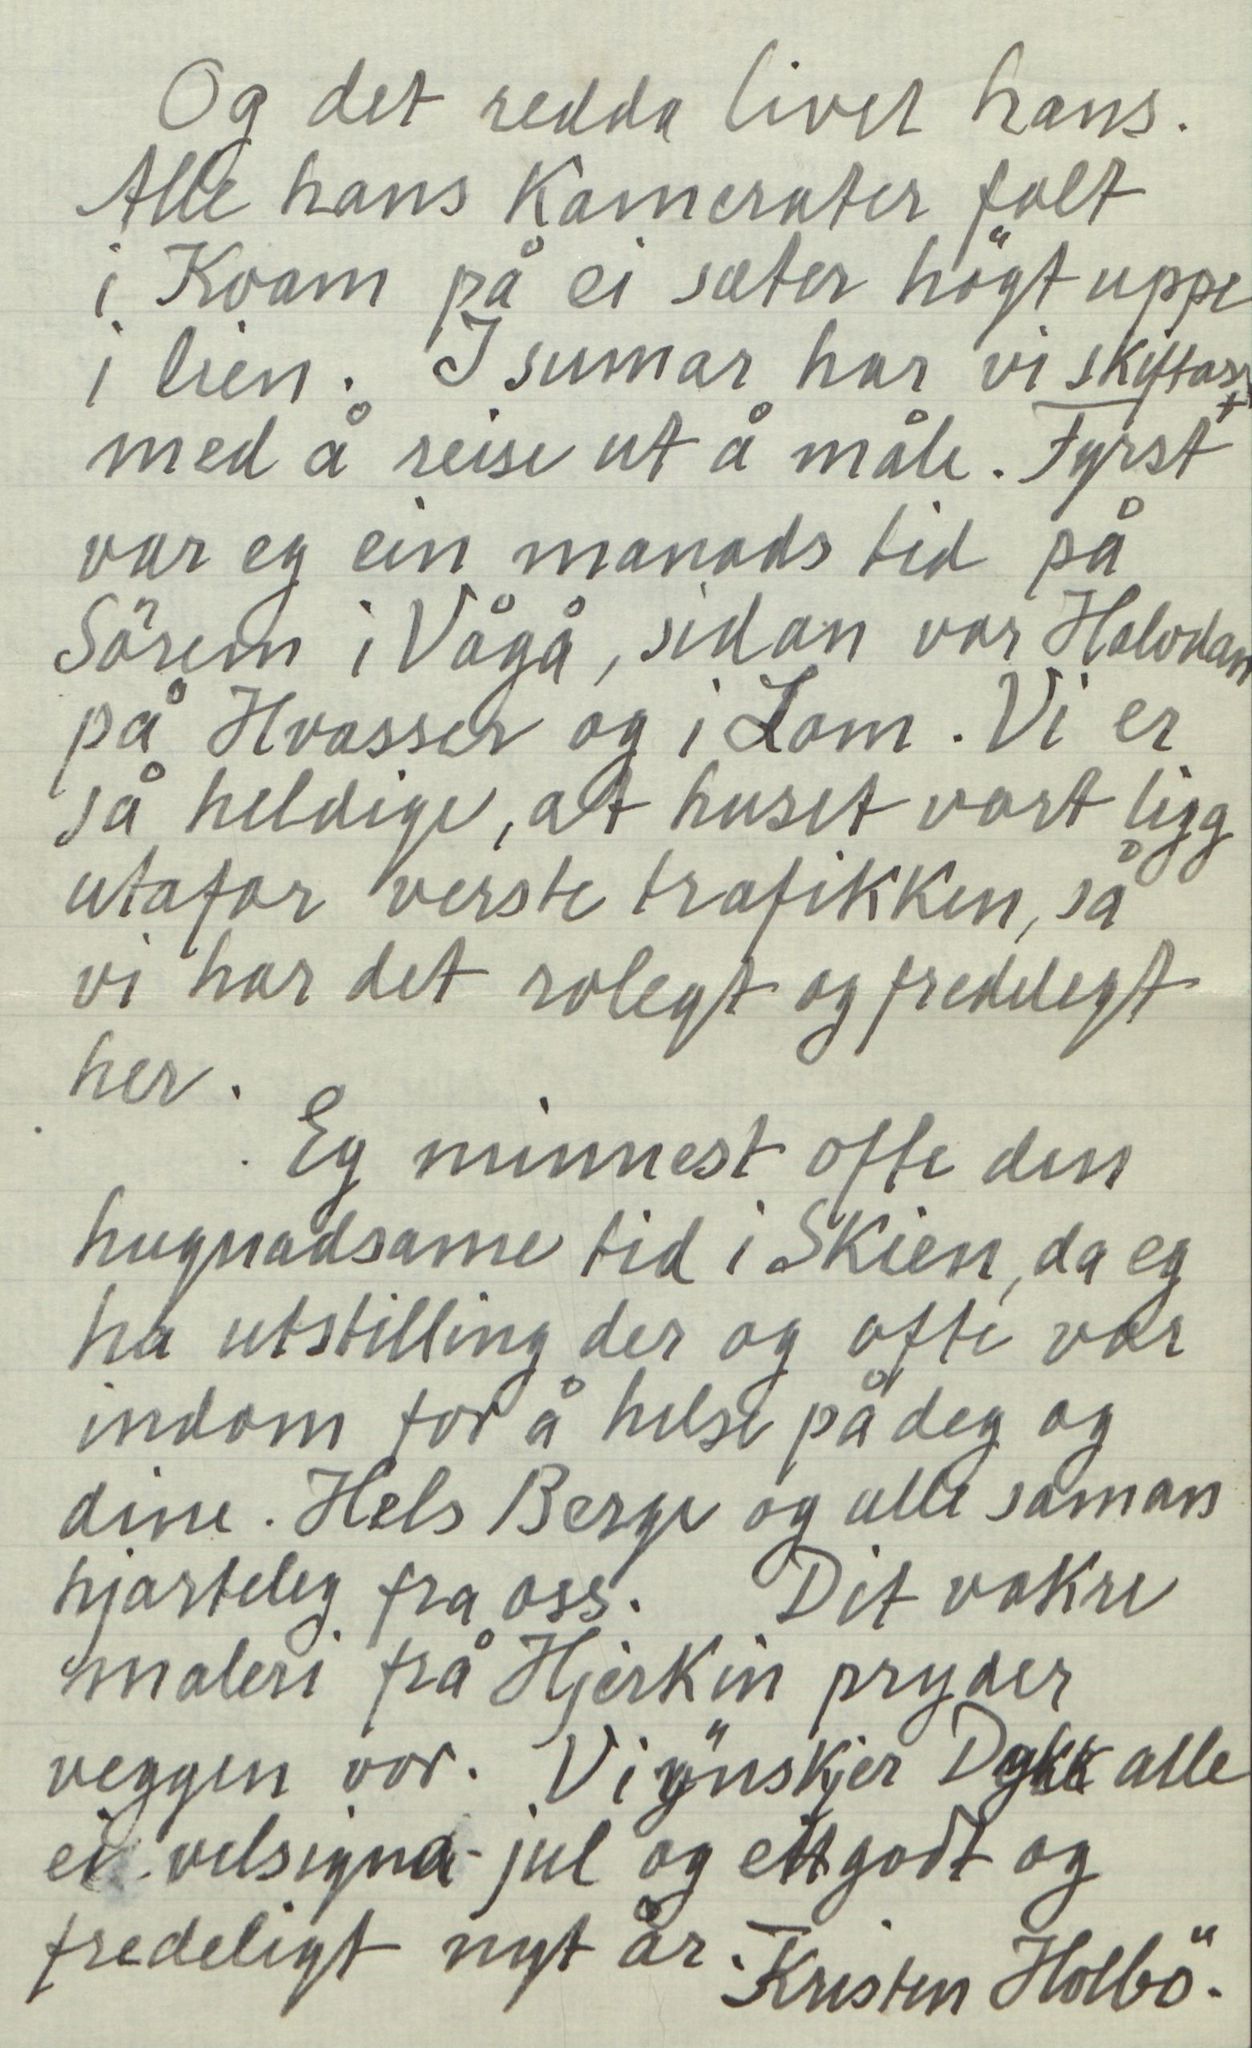 Og det redda livet hans.
Alle hans Kamerater falt
i Kvam på ei sæter högt uppe
i lien. I sumar har vi skiftast
med å reise ut å måle. Fyrst
var eg ein manads tid på
Sörem i Vågå, sidan var Halvdan
på Hvasser og i Lom. Vi er
så heldige, at huset vort ligg
utafor verste trafikken, så
vi har det rolegt og fredelegt
her.
Eg minnest ofte den
hugnadsame tid i Skien, da eg
ha utstilling der og ofte var
indom for å helse på deg og
dine. Hels Berge og alle saman
hjarteleg fra oss. Dit vakre
maleri frå Hjerkin pryder
veggen vor. Vi ynskjer Dykk alle
ei velsigna jul og eitt godt og
fredeligt nyt år. Kristen Holbö.